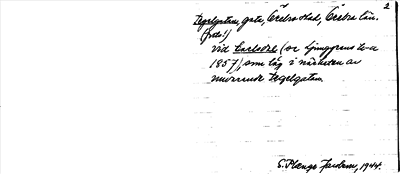 2
Tegelgatan, gata, Örebro stad, Örebro län.
(foto!)
vid Karlsdal (se Ljunggrens
1857), som låg i närheten av
nuvarande Tegelgatan.
S. Plænge Jacobson, 1944.